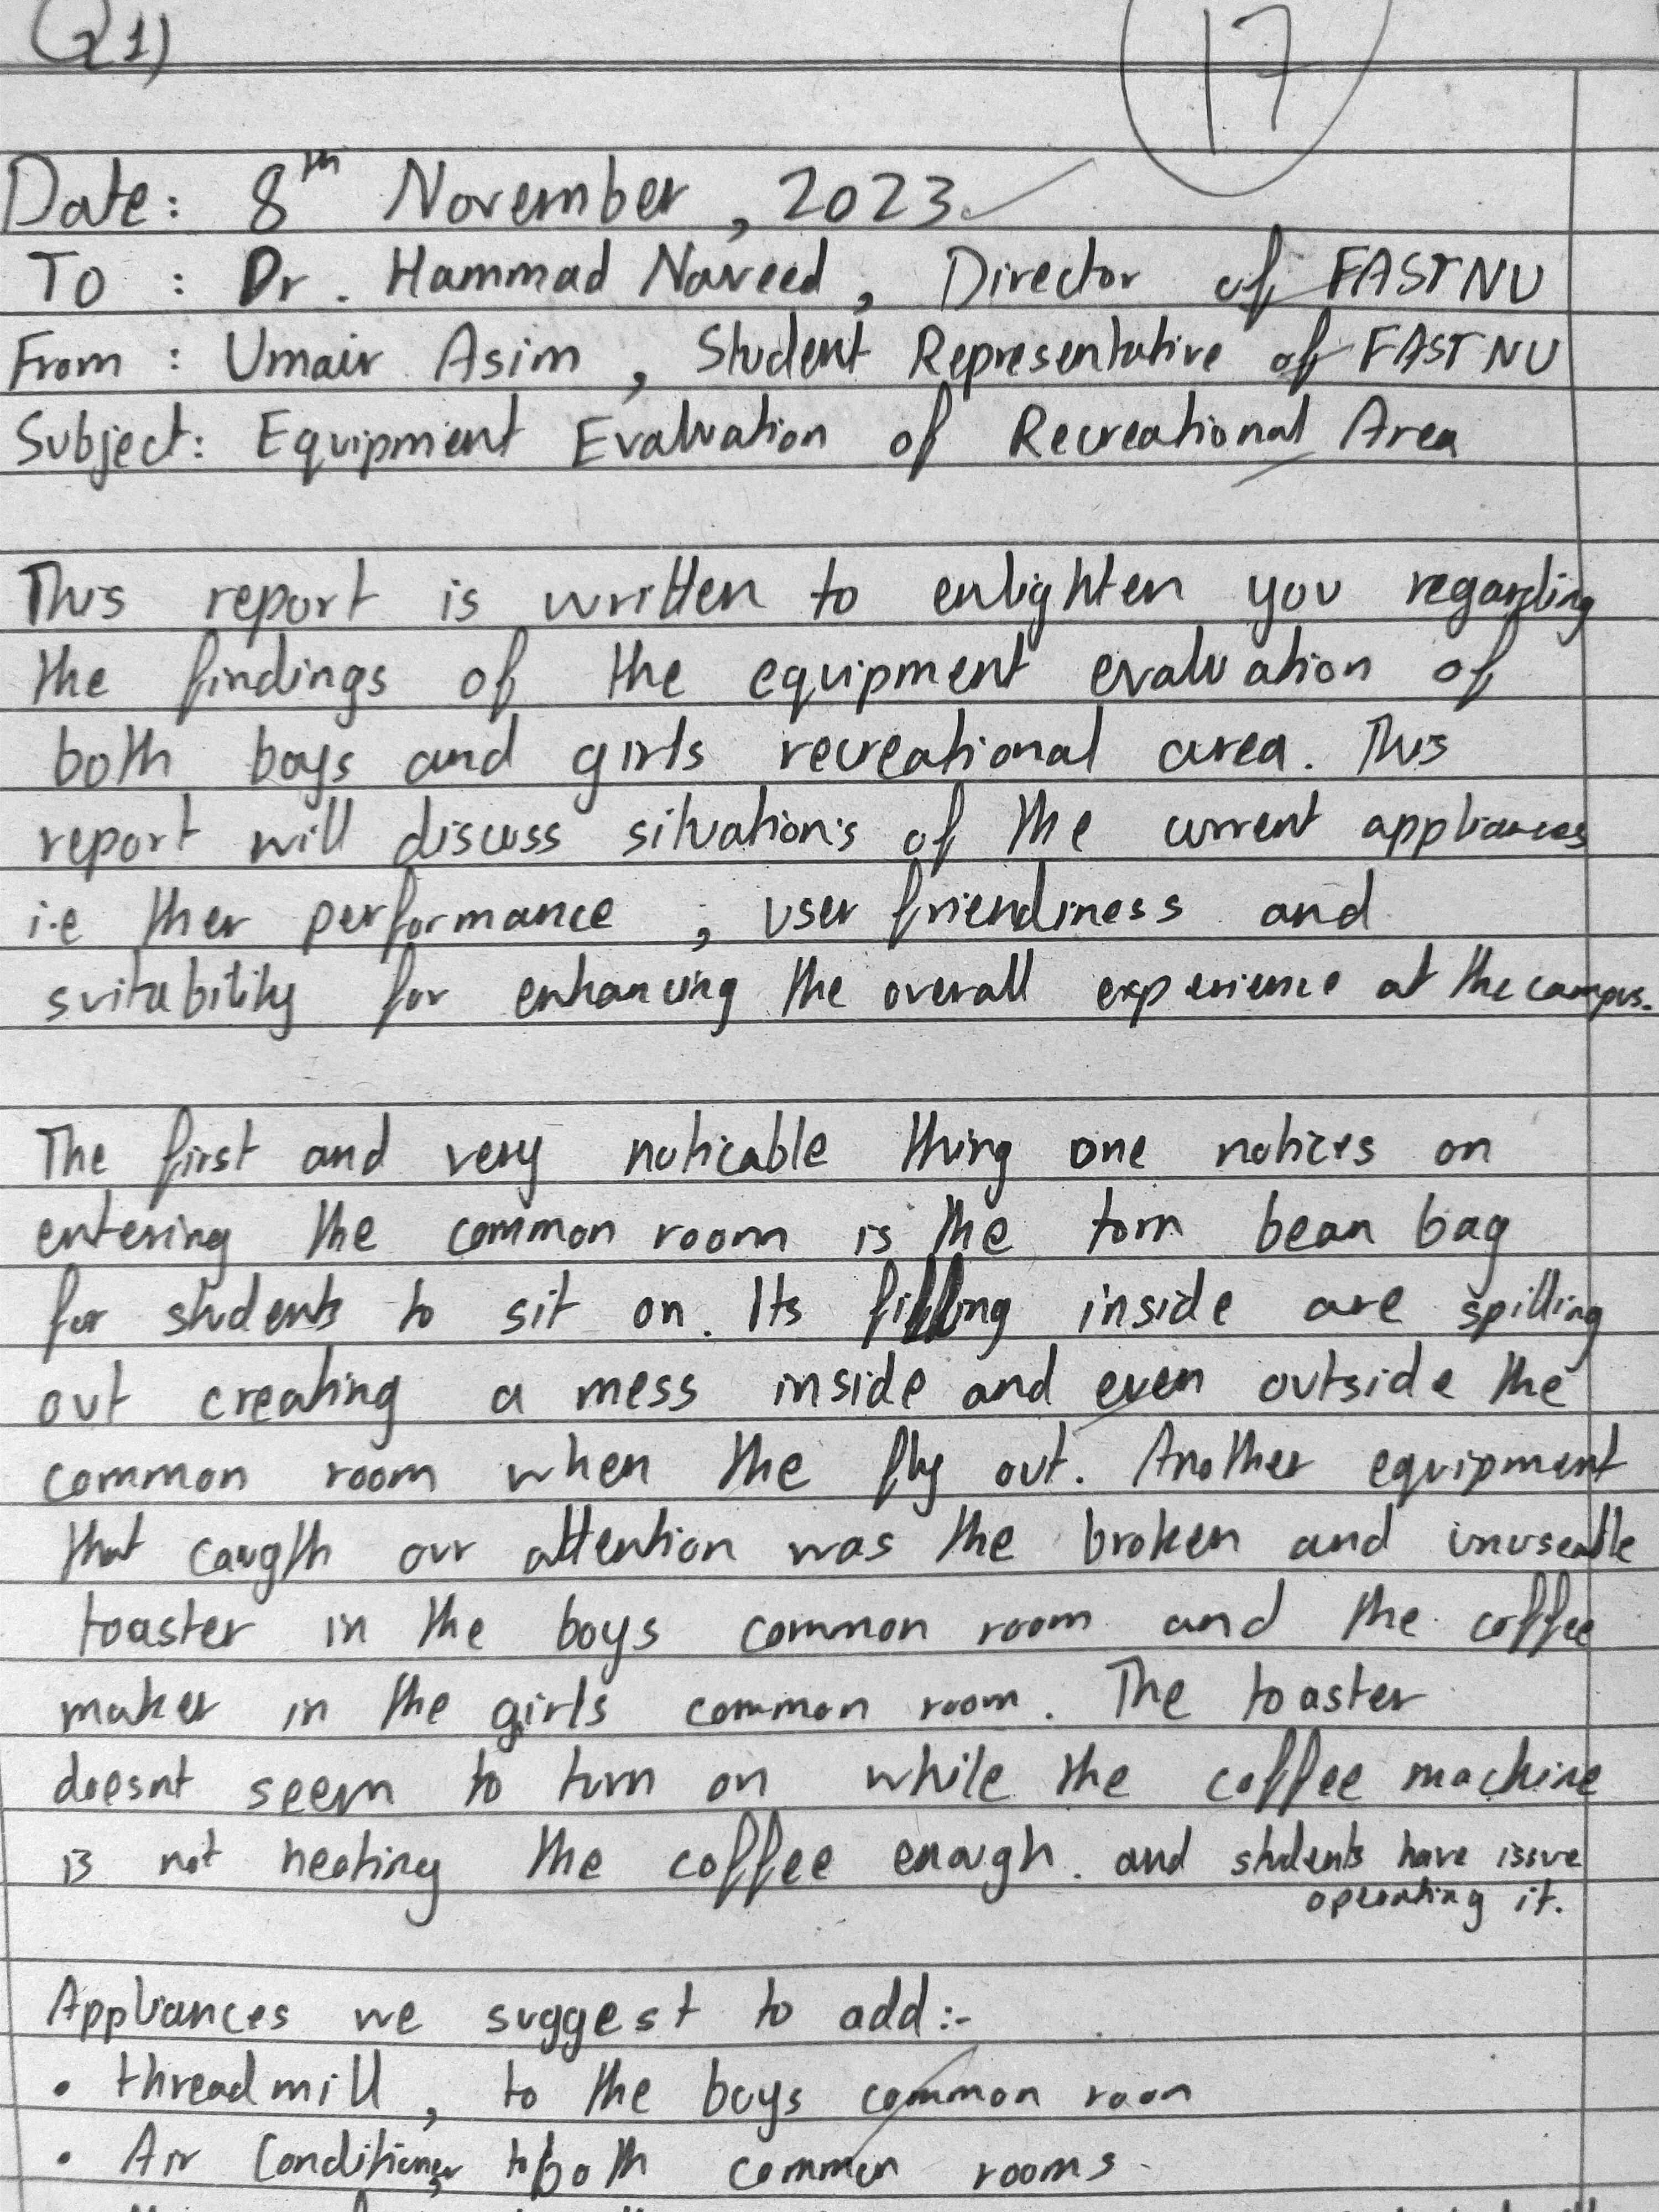 Q1)
17
Date: 8th November, 2023
To : Dr. Hammad Naveed, Director of FASTNU
From : Umair Asim, Student Representative of FASTNU
Subject: Equipment Evaluation of Recreational Area
This report is written to enlighten you regarding
the findings of the equipment evaluation of
both boys and girls recreational area. This
report will discuss situations of the current appliances
i.e ther performance, user friendliness and
suitability for enhancing the overall experience at the campus.
The first and very noticable thing one notices on
entering the common room is the torn bean bag
for students to sit on. Its filling inside are spilling
out creating a mess inside and even outside the
common room when the fly out. Another equipment
that caugth our attention was the broken and unuseable
toaster in the boys common room and the coffee
maker in the girls common room. The toaster
doesnt seem to turn on while the coffee machine
is not heating the coffee enough. and students have issue
operating it.
Appliances we suggest to add:-
• threadmill, to the boys common room
• Air Conditioner to both common rooms.